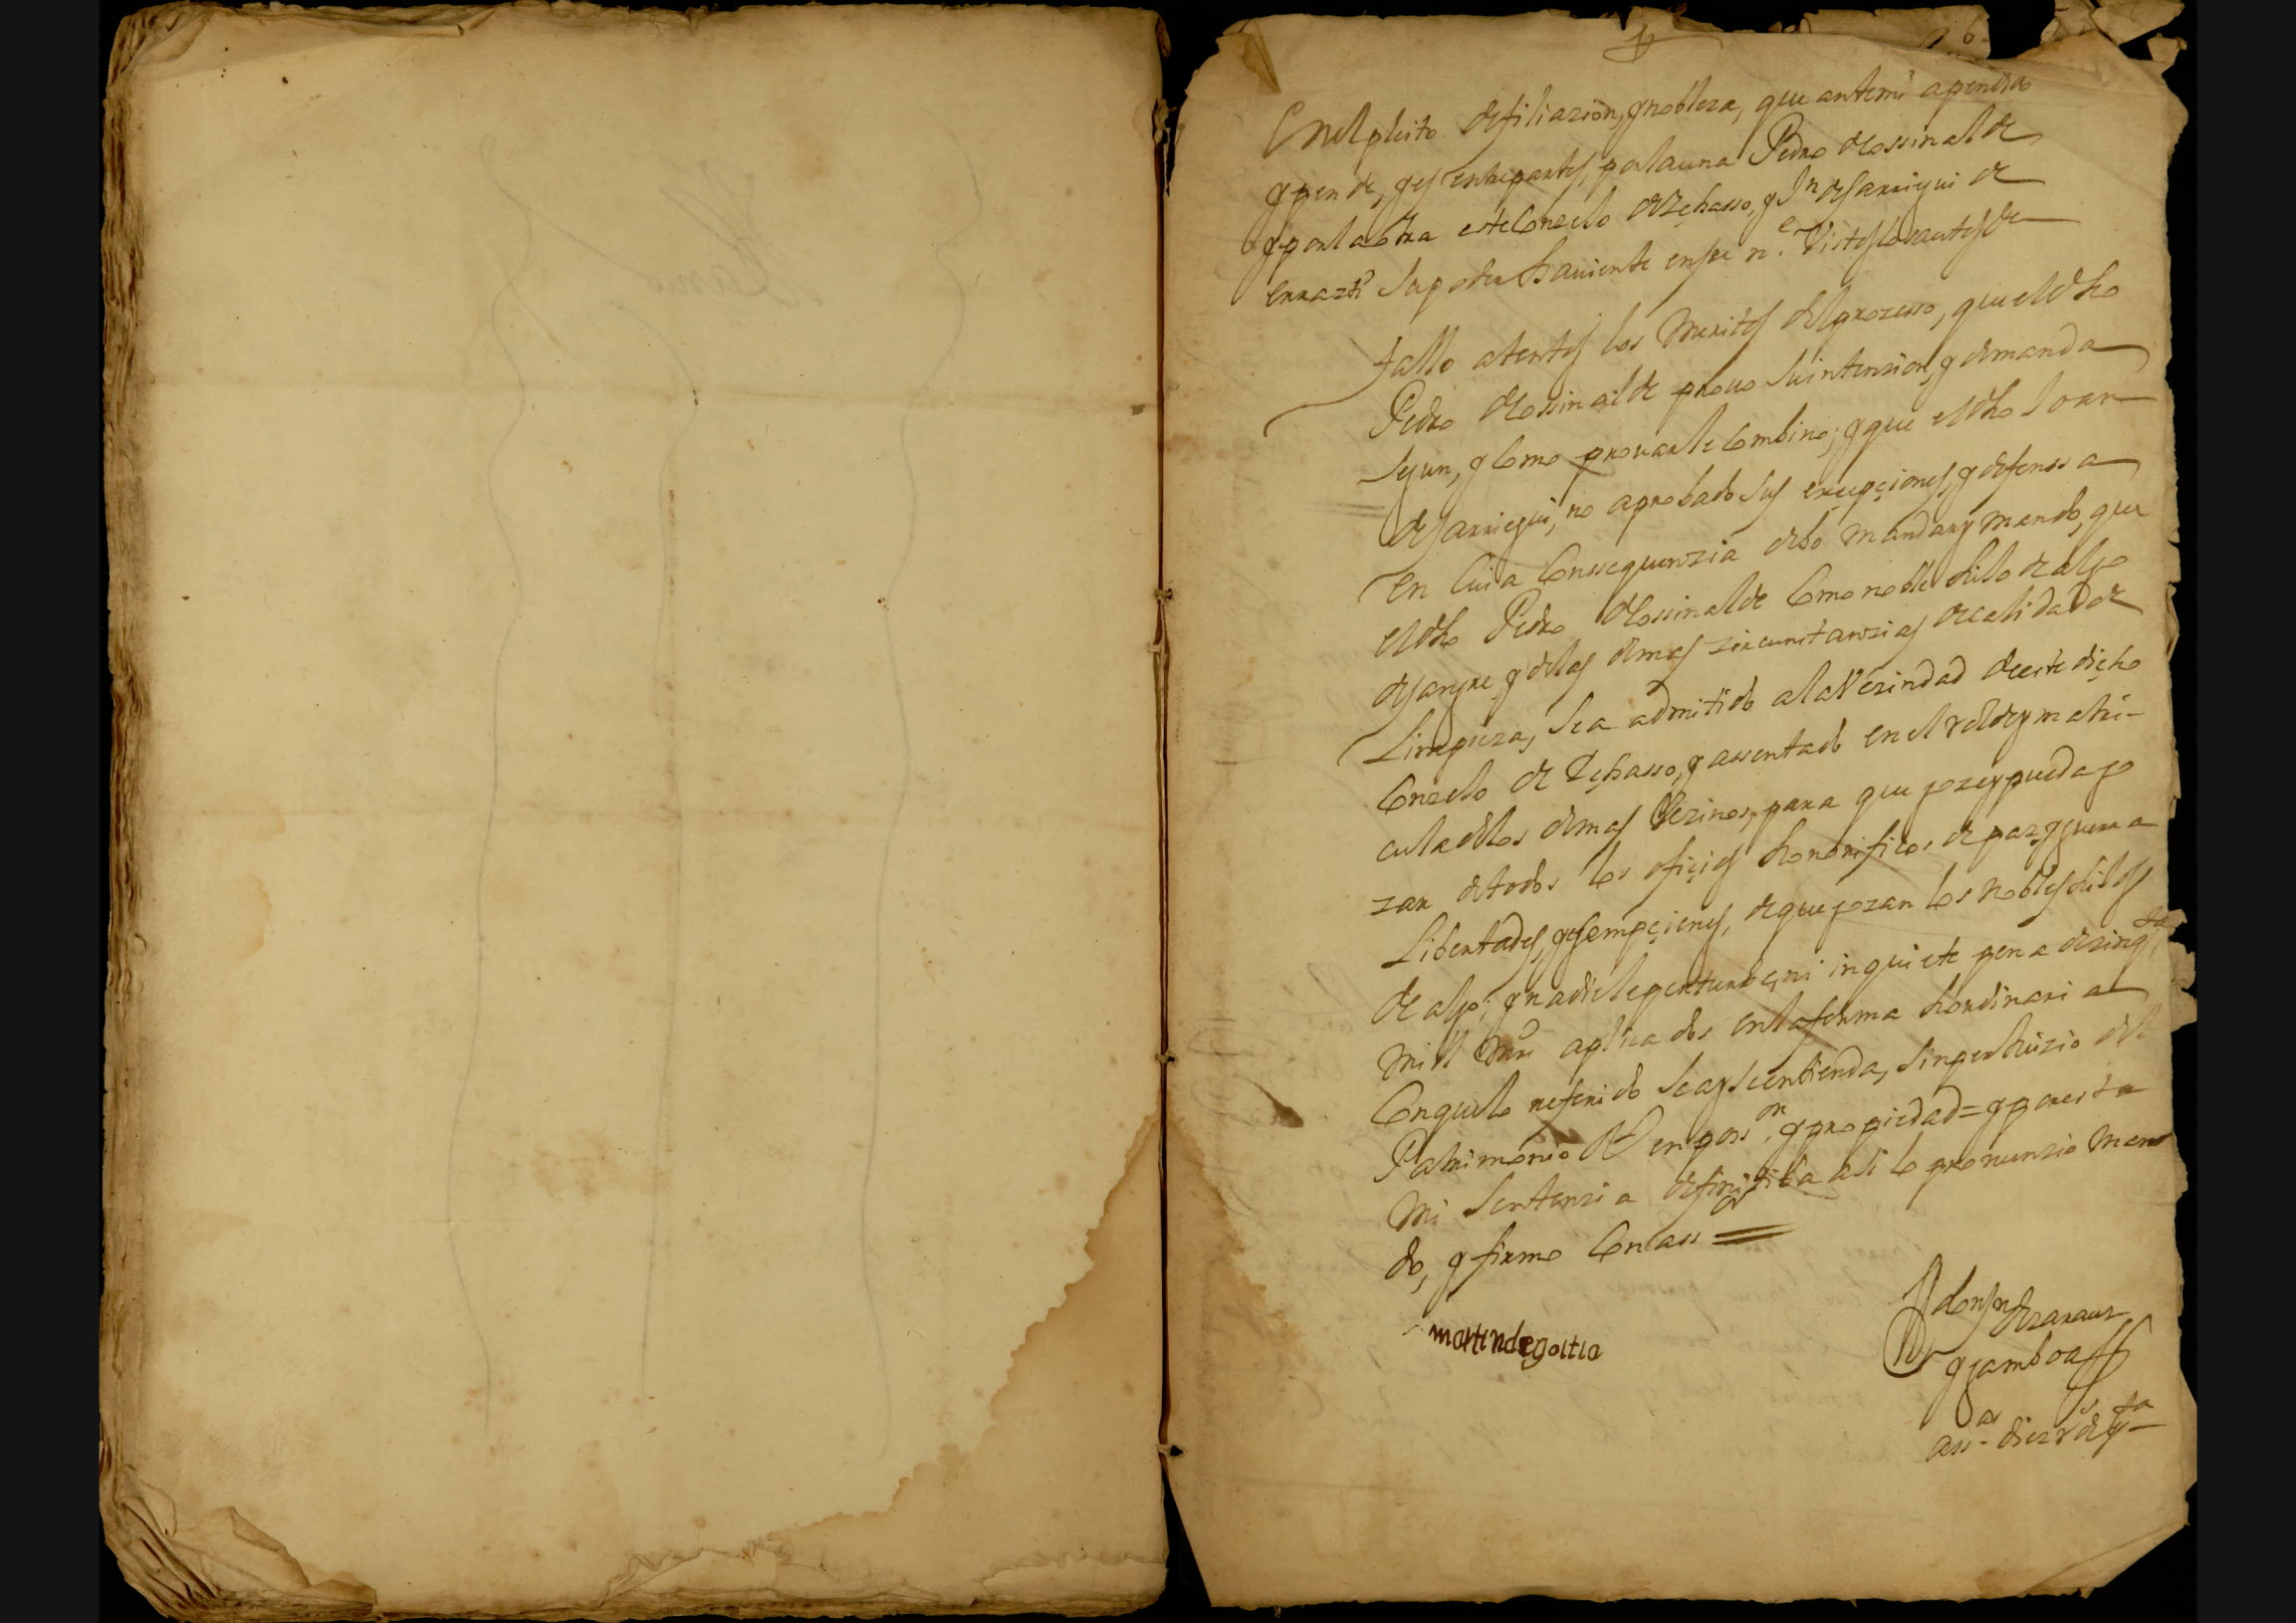 En el pleito de filiazion, y nobleza, que ante mi a pendido
y pende, y es entre partes, por la una Pedro de ossinalde
y por la otra este Conzelo de Ichasso, y Jn de Sarriegui de
errazti su poder haviente en su ne. Vistos los autos de
Fallo atentos los Meritos del prozesso, que el dho
Pedro de ossinalde provo su intenzion, y demanda
segun, y como provar le combino; y que el dho Joan
de Sarriegui, no a probado sus excepçiones, y defenssa
en cuia Conssequenzia debo mandar y mando, que
el dho Pedro de ossinalde Como noble hilo de algo
de sangre y de las demas zircunstanzias de calidad de
Limpieza, sea admitido a la Vezindad de este dicho
Conzelo de Ichasso, y assentado en el rolde y matri-
cula de los demas Vezinos, para que goze y pueda go
zar de todos los ofiçios honorificos de paz, y guerra
Libertades, y esempçiones, de que gozan los nobles hilos
de algo; y nadie le perturbe, ni inquiete pena de zinqta
mill mrs aplicados en la forma hordinaria
Con que lo referido sea y se entienda, sin perhuizio del
Patrimonio Rl en poss.on y propiedad = y por esta
mi Sentenzia definitiba asi lo pronunzio man
do, y firmo Con assor
martin de goitia
Don Jn de zarauz
y gamboa
assor